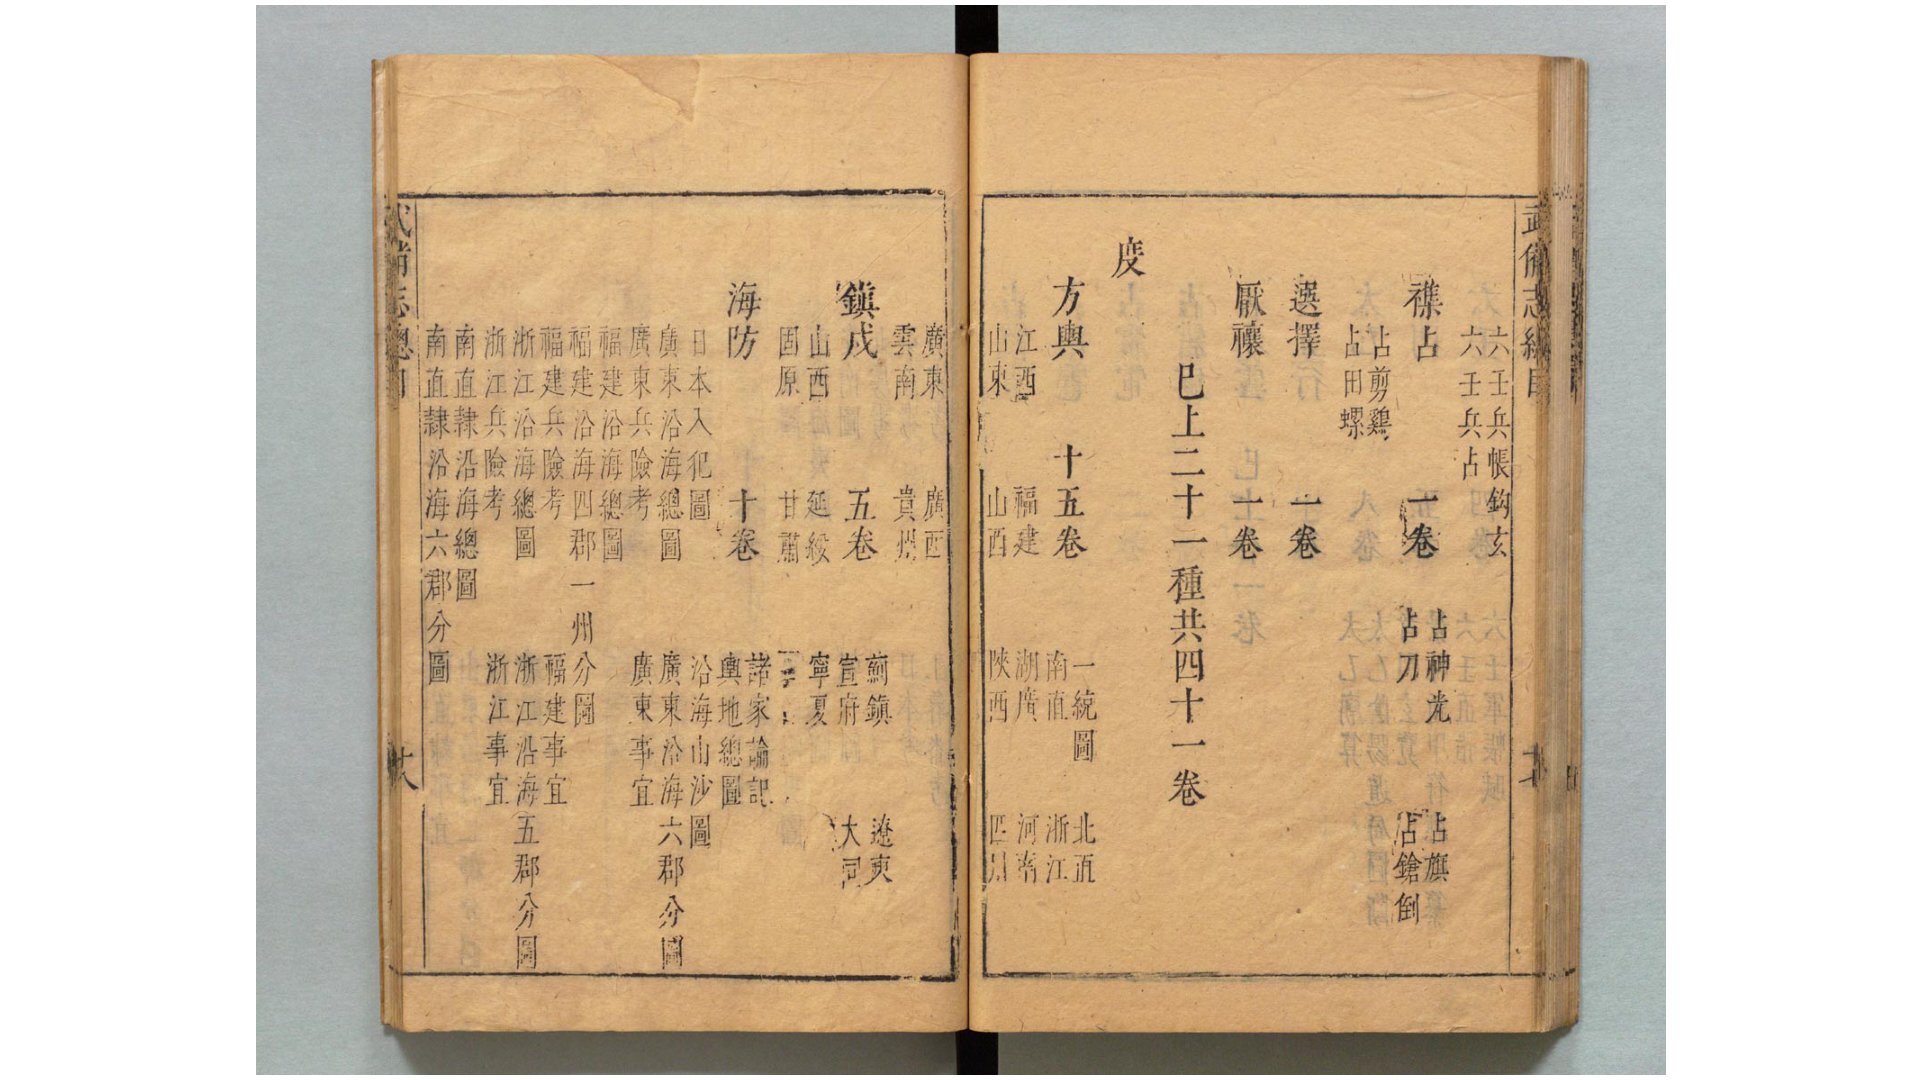 六壬兵帳鈎玄
六壬兵占
襍占 一卷
占神光 占旗
占剪鷄 占刀 占鎗倒
占田螺
選擇 一卷
厭禳 一卷
已上二十一種共四十一卷
度
方輿 十五卷
一統圖 北直
南直 浙江
江西 福建 湖廣 河南
山東 山西 陝西
廣東 廣西
雲南 貴州
鎮戍 五卷
薊鎮 遼東
宣府 大同
山西 延綏 寧夏
固原 甘肅
海防 十卷
諸家論記
輿地總圖
日本入犯圖 沿海山沙圖
廣東沿海總圖 廣東沿海六郡分圖
廣東兵險考 廣東事宜
福建沿海總圖
福建沿海四郡一州分圖
福建兵險考 福建事宜
浙江沿海總圖 浙江沿海五郡分圖
浙江兵險考 浙江事宜
南直隸沿海總圖
南直隸沿海六郡分圖